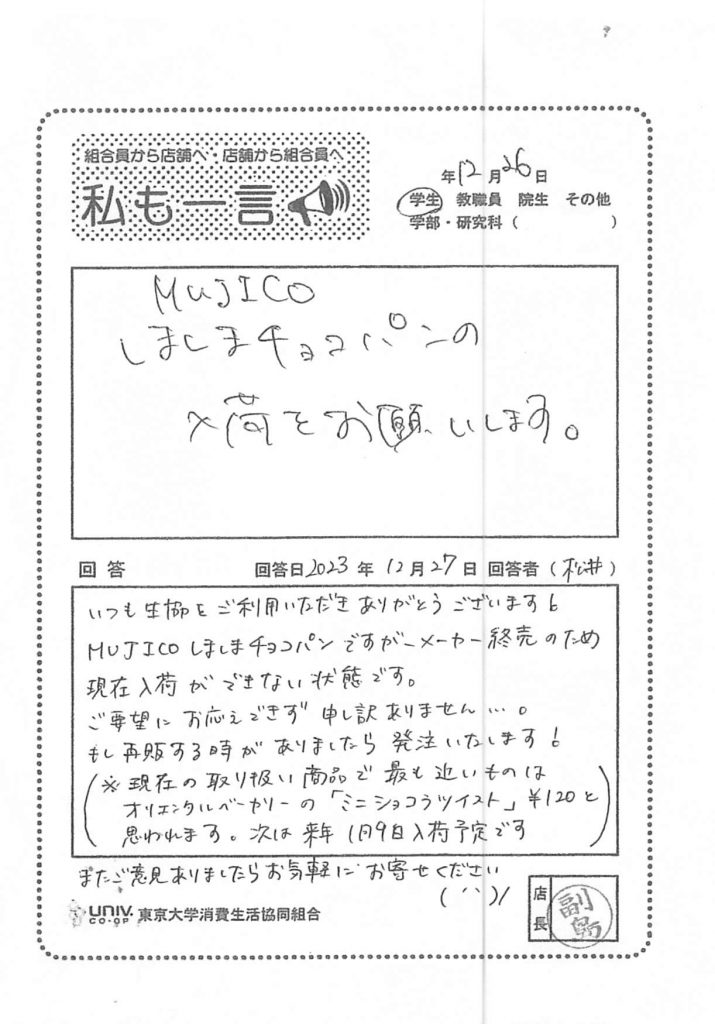 組合員から店舗へ・店舗から組合員へ
私も一言
年12月26日
学生 教職員 院生 その他
学部・研究科( )
MUJICO
しましまチョコパンの
入荷をお願いします。
回答 回答日2023年12月27日 回答者(松井)
いつも生協をご利用いただきありがとうございます!
MUJICOしましまチョコパンですがーメーカー終売のため
現在入荷ができない状態です。
ご要望にお応えできず申し訳ありません…。
もし再販する時がありましたら発注いたします!
(※現在の取り扱い商品で最も近いものは
オリエンタルベーカリーの「ミニショコラツイスト」¥120と
思われます。次は来年1月9日入荷予定です)
またご意見ありましたらお気軽にお寄せください
UNIV. CO-OP 東京大学消費生活協同組合
店長
副島